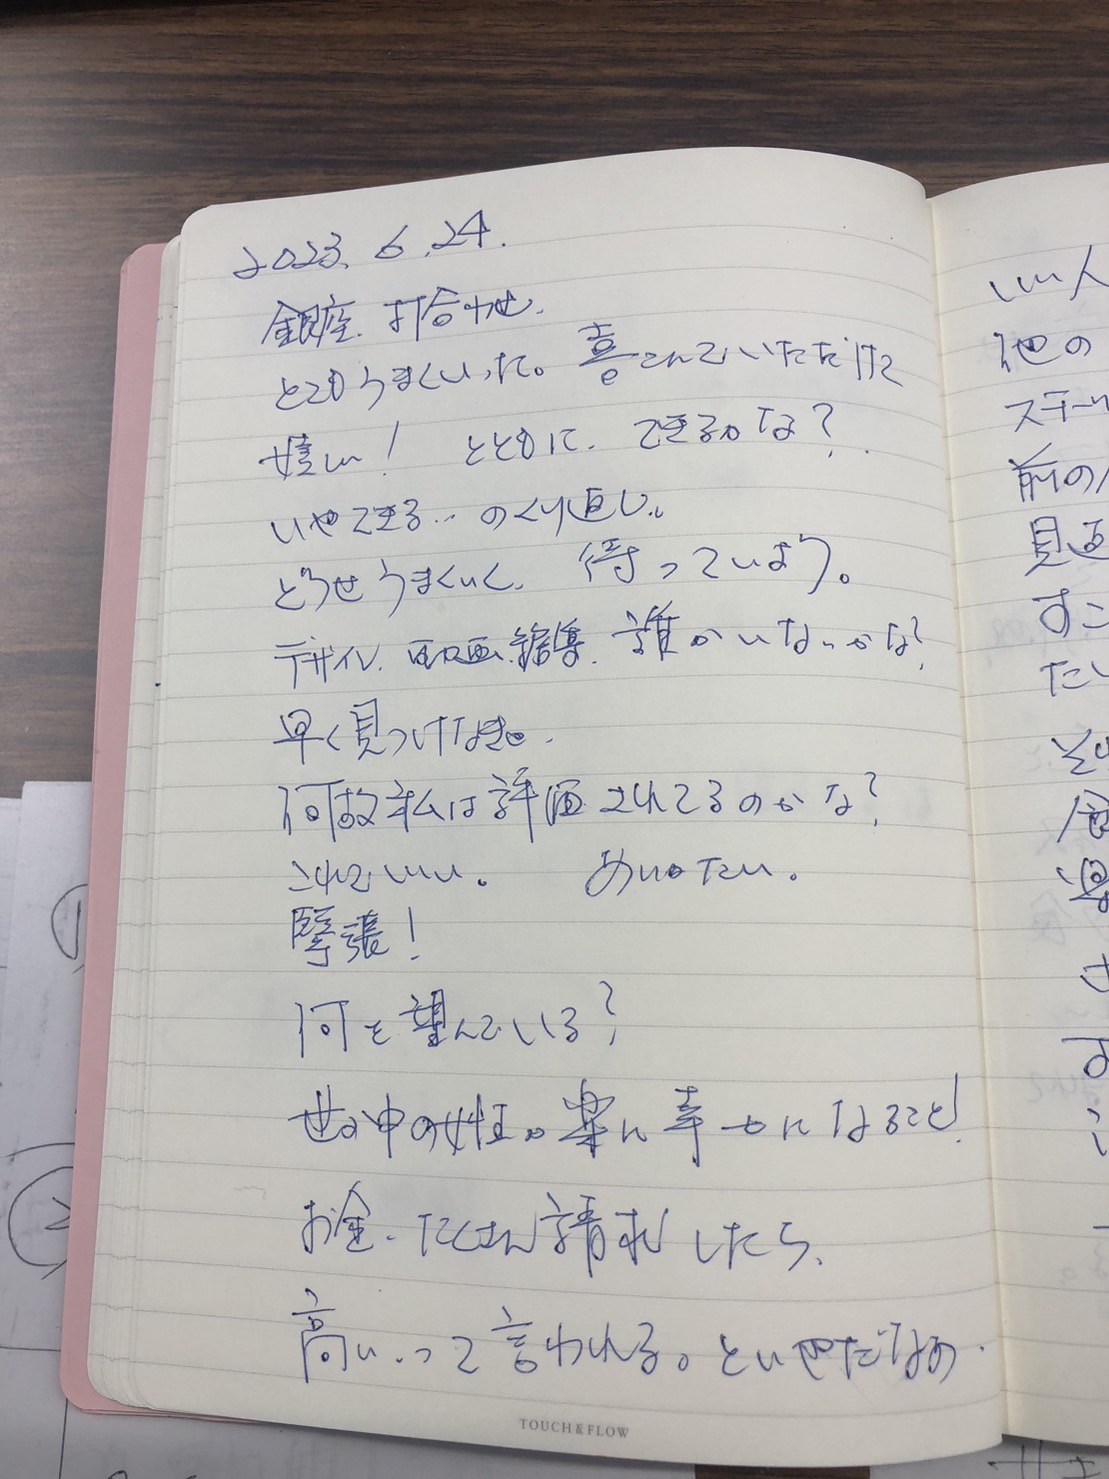 2023. 6. 24.
銀座. 打合わせ.
とてもうまくいった。喜こんでいただけて
嬉しい! とともに. できるかな?
いやできる.. のくり直し。
どうせうまくいく. 待っていよう。
デザイン. 動画編集. 誰かいないかな?
早く見つけなきゃ.
何故私は評価されてるのかな?
されていい。
緊張!
何を望んでいる?
世の中の女性が楽に幸せになること!
お金. たくさん請求したら、
高い.って言われる。といやだなの.
いい人
他の
ステー
前の
見
すこ
たい
TOUCH&FLOW